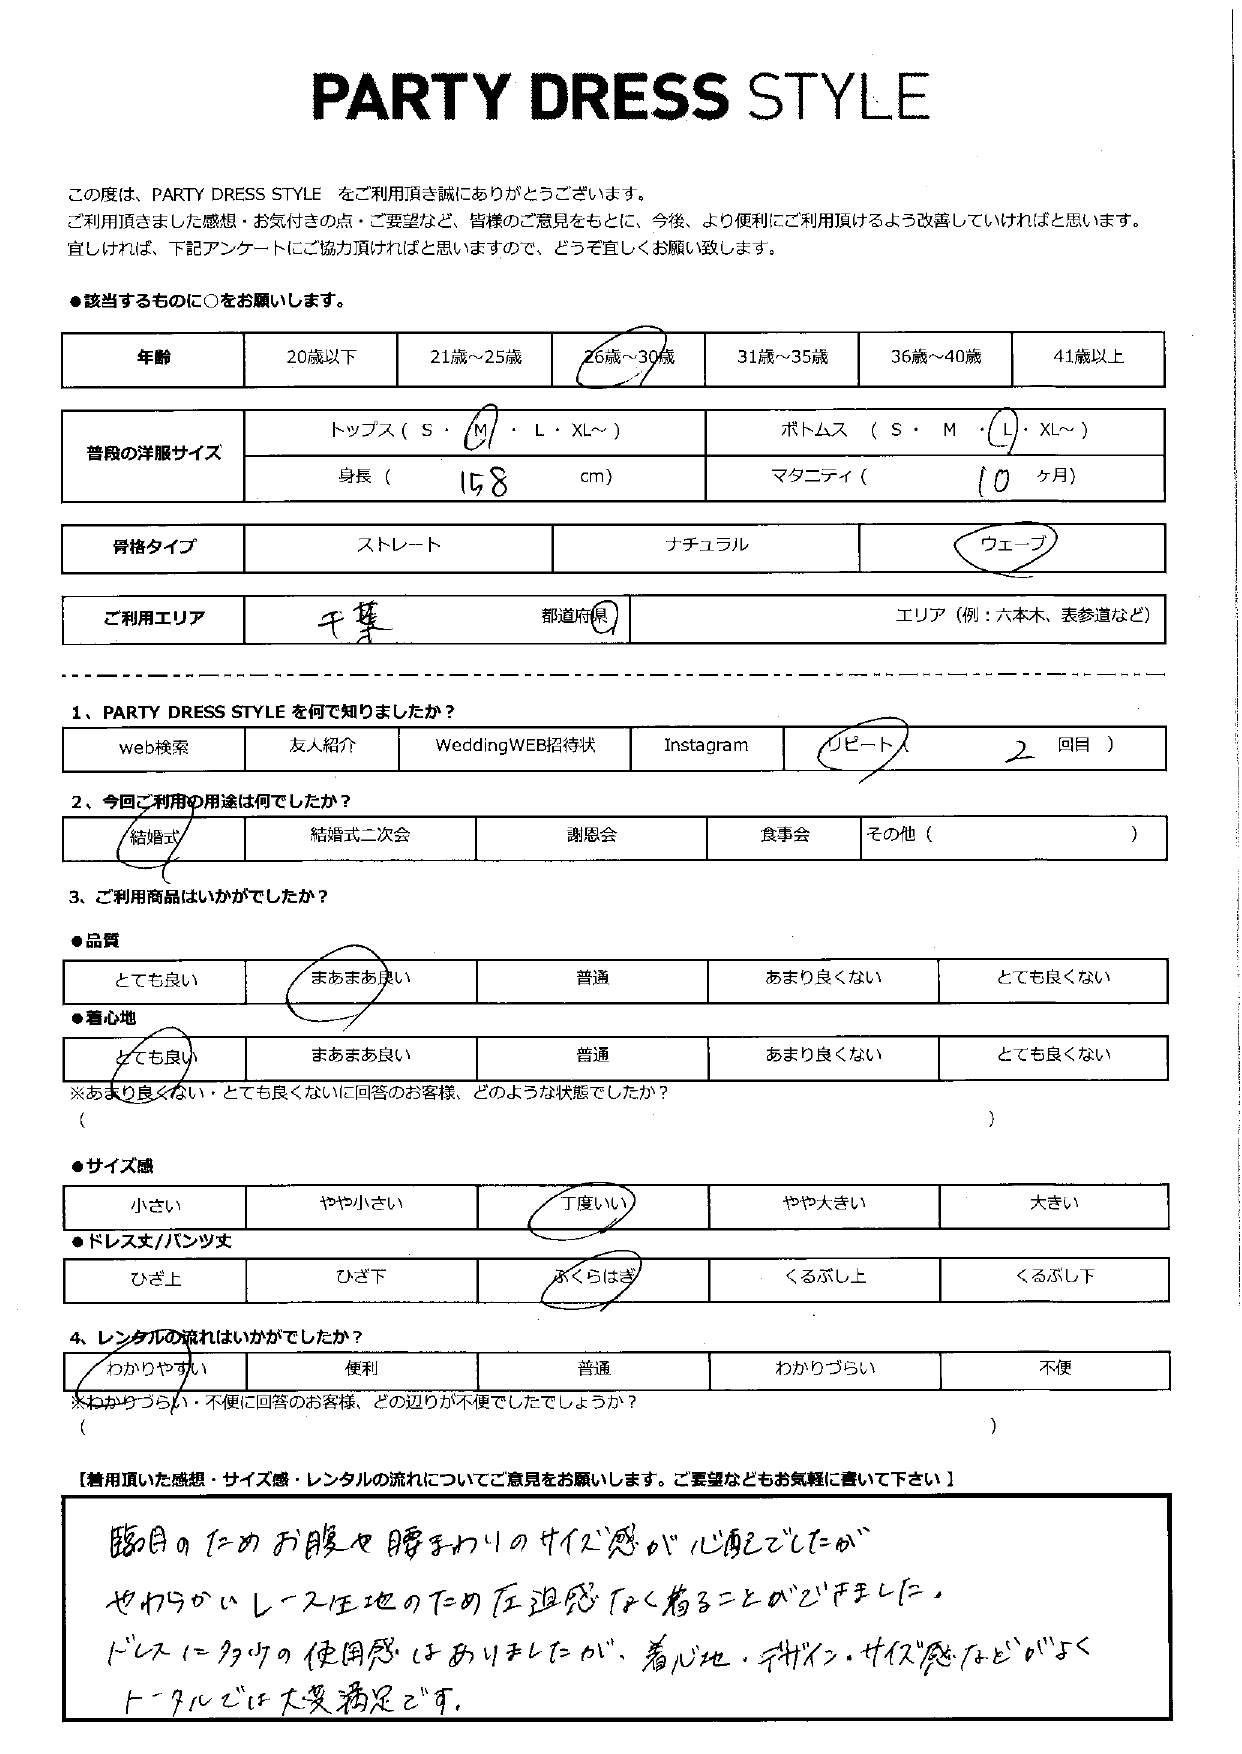 PARTY DRESS STYLE
この度は、PARTY DRESS STYLE をご利用頂き誠にありがとうございます。
ご利用頂きました感想・お気付きの点・ご要望など、皆様のご意見をもとに、今後、より便利にご利用頂けるよう改善していければと思います。
宜しければ、下記アンケートにご協力頂ければと思いますので、どうぞ宜しくお願い致します。
●該当するものに○をお願いします。
年齢 20歳以下 21歳～25歳 26歳～30歳 31歳～35歳 36歳～40歳 41歳以上
普段の洋服サイズ トップス ( S ・ M ・ L ・ XL～ ) ボトムス ( S ・ M ・ L ・ XL～ )
身長 ( 158 cm) マタニティ ( 10 ヶ月)
骨格タイプ ストレート ナチュラル ウェーブ
ご利用エリア 千葉 都道府県 エリア（例：六本木、表参道など）
1、PARTY DRESS STYLE を何で知りましたか？
web検索 友人紹介 WeddingWEB招待状 Instagram リピート ( 2 回目 )
2、今回ご利用の用途は何でしたか？
結婚式 結婚式二次会 謝恩会 食事会 その他 ( )
3、ご利用商品はいかがでしたか？
●品質
とても良い まあまあ良い 普通 あまり良くない とても良くない
●着心地
とても良い まあまあ良い 普通 あまり良くない とても良くない
※あまり良くない・とても良くないに回答のお客様、どのような状態でしたか？
( )
●サイズ感
小さい やや小さい 丁度いい やや大きい 大きい
●ドレス丈/パンツ丈
ひざ上 ひざ下 ふくらはぎ くるぶし上 くるぶし下
4、レンタルの流れはいかがでしたか？
わかりやすい 便利 普通 わかりづらい 不便
※わかりづらい・不便に回答のお客様、どの辺りが不便でしたでしょうか？
( )
【着用頂いた感想・サイズ感・レンタルの流れについてご意見をお願いします。ご要望などもお気軽に書いて下さい】
臨月のためお腹や腰まわりのサイズ感が心配でしたが
やわらかいレース生地のため圧迫感なく着ることができました。
ドレスに多少の使用感はありましたが、着心地・デザイン・サイズ感などがよく
トータルでは大変満足です。